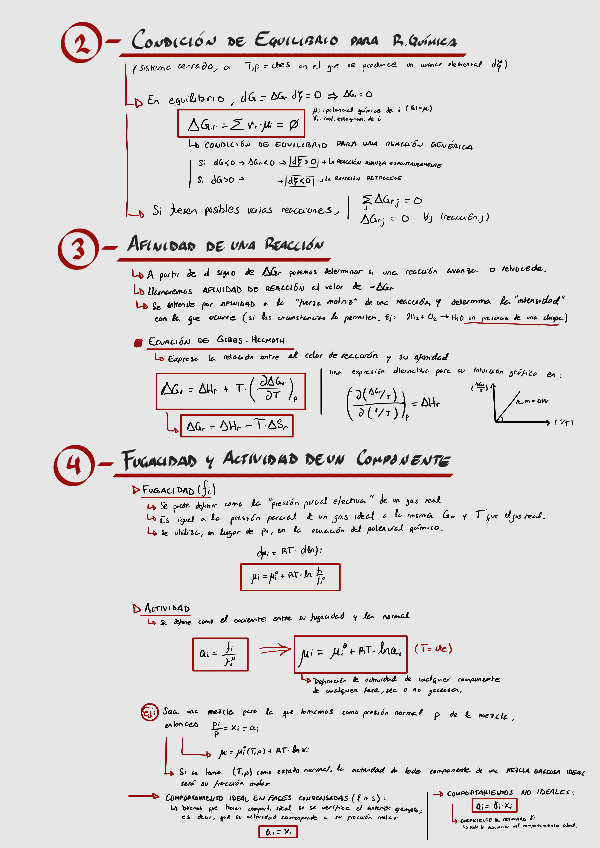 2 - CONDICIÓN DE EQUILIBRIO PARA R.QUÍMICA
(Sistema cerrado, a T,p = ctes en el que se produce un avance elemental dξ)
En equilibrio, dG = ΔGr dξ = 0 ⇒ ΔGr = 0
μi: potencial químico de i (Gi=μi)
ΔGr = Σ νi·μi = 0
νi: coef. estequiom. de i
CONDICIÓN DE EQUILIBRIO PARA UNA REACCIÓN GENÉRICA
Si dG<0 → ΔGr<0 → |dξ>0| → LA REACCIÓN AVANZA ESPONTÁNEAMENTE
Si dG>0 → → |dξ<0| → LA REACCIÓN RETROCEDE
Si tienen posibles varias reacciones, Σ ΔGr,j = 0
ΔGr,j = 0 ∀j (reacción j)
3 - AFINIDAD DE UNA REACCIÓN
A partir de el signo de ΔGr podemos determinar si una reacción avanza o retrocede.
Llamaremos AFINIDAD DE REACCIÓN al valor de -ΔGr
Se entiende por AFINIDAD a la "fuerza motriz" de una reacción y determina la "intensidad"
con la que ocurre (si las circunstancias lo permiten. Ej: 2H2 + O2 → H2O en presencia de una chispa)
ECUACIÓN DE GIBBS-HELMOTH
Expresa la relación entre el calor de reacción y su afinidad
Una expresión alternativa para su intuición gráfica es:
ΔGr = ΔHr + T·(∂ΔGr/∂T)p
(∂(ΔGr/T)/∂(1/T))p = ΔHr
m = ΔHr
(1/T)
ΔGr = ΔHr - T·ΔSr
4 - FUGACIDAD Y ACTIVIDAD DE UN COMPONENTE
FUGACIDAD (fi)
Se puede definir como la "presión parcial efectiva" de un gas real
Es igual a la presión parcial de un gas ideal a la misma Gm y T que el gas real.
Se utiliza, en lugar de pi, en la ecuación del potencial químico.
dμi = RT·dlnfi
μi = μi° + RT·ln fi/fi°
ACTIVIDAD
Se define como el cociente entre su fugacidad y la normal
ai = fi/fi° ⇒ μi = μi° + RT·ln ai (T=cte)
Definición de actividad de cualquier componente
de cualquier fase, sea o no gaseosa.
Ej: Sea una mezcla para la que tomemos como presión normal p de la mezcla,
entonces pi/p = xi = ai
μi = μi°(T,p) + RT·ln xi
Si se toma (T,p) como estado normal, la actividad de todo componente de una MEZCLA GASEOSA IDEAL
será su fracción molar
COMPORTAMIENTO IDEAL EN FASES CONDENSADAS (l o s):
es decir, que su actividad corresponde a su fracción molar
ai = xi
COMPORTAMIENTOS NO IDEALES:
ai = γi·xi
COEFICIENTE DE ACTIVIDAD γi